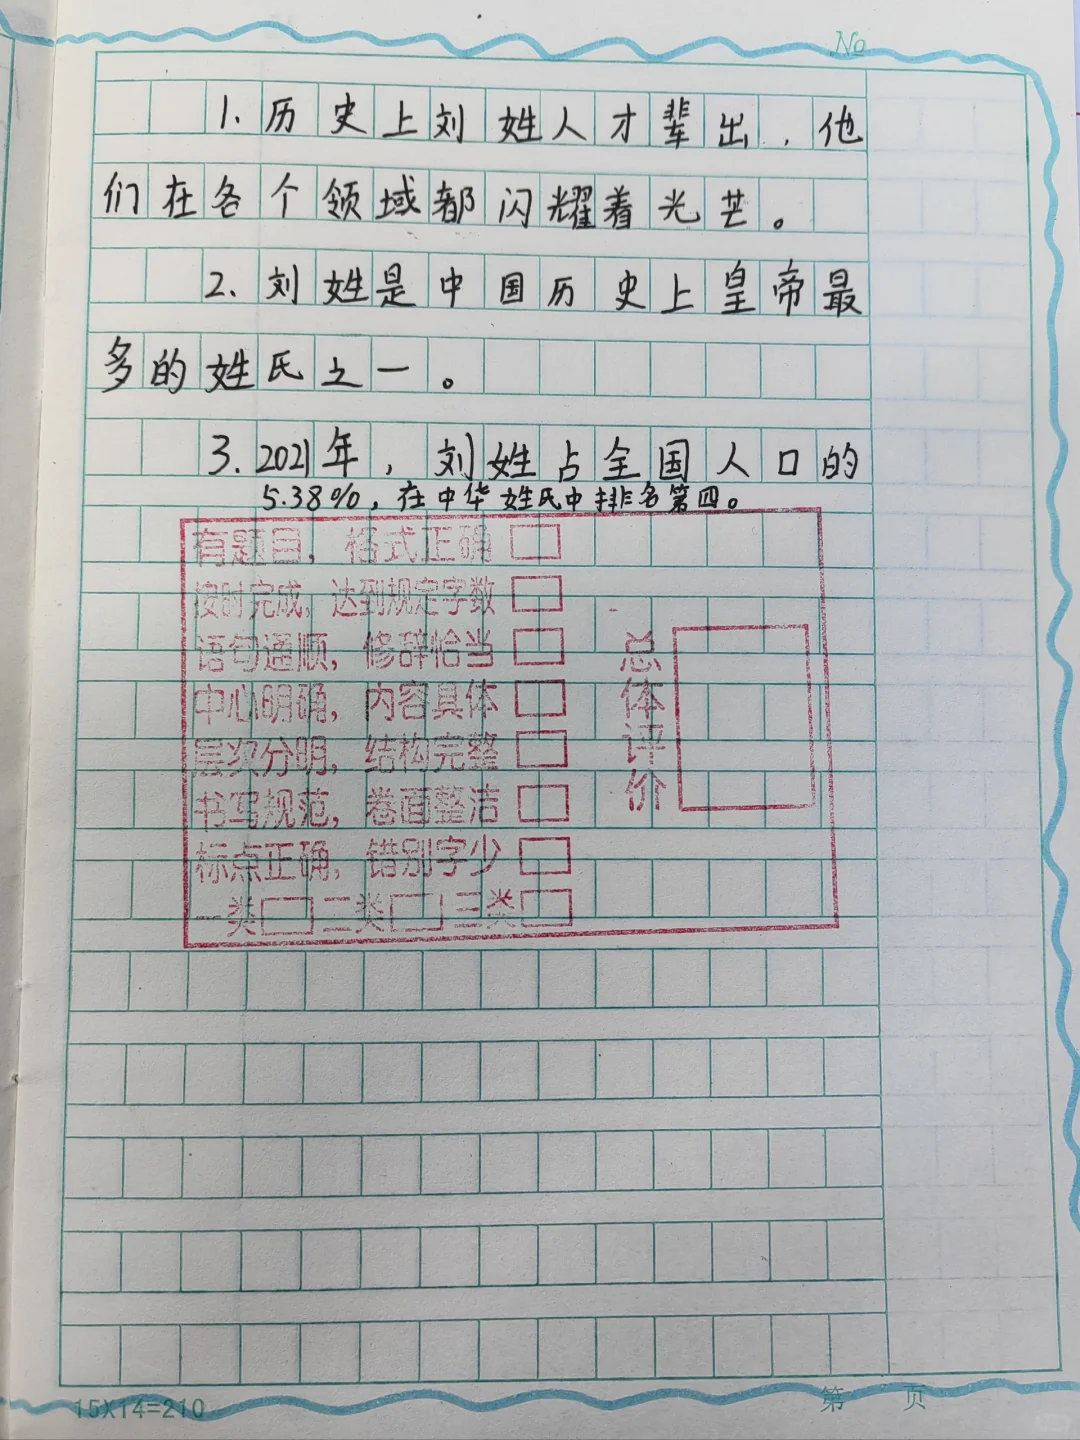 No
1.历史上刘姓人才辈出，他
们在各个领域都闪耀着光芒。
2.刘姓是中国历史上皇帝最
多的姓氏之一。
3.2021年，刘姓占全国人口的
5.38%，在中华姓氏中排名第四。
有题目，格式正确
按时完成，达到规定字数
语句通顺，修辞恰当
中心明确，内容具体
层次分明，结构完整
书写规范，卷面整洁
标点正确，错别字少
一类 二类 三类
总体评价
15X14=210
第 页